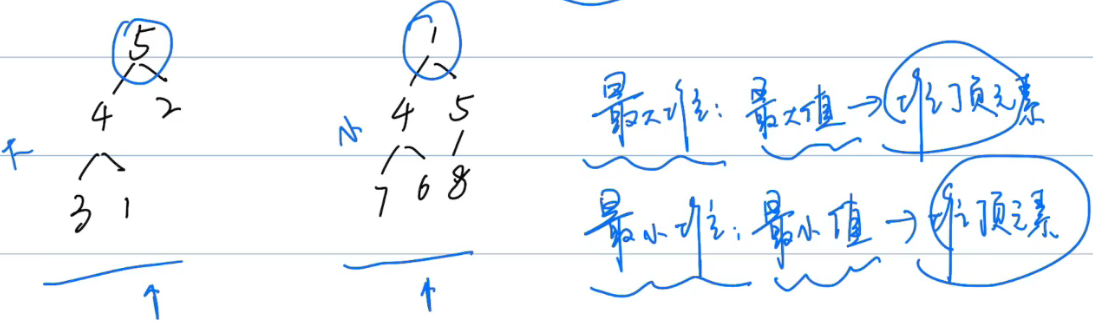 5
4 2
大
3 1
1
4 5
小
7 6 8
最大堆：最大值→堆顶元素
最小堆：最小值→堆顶元素